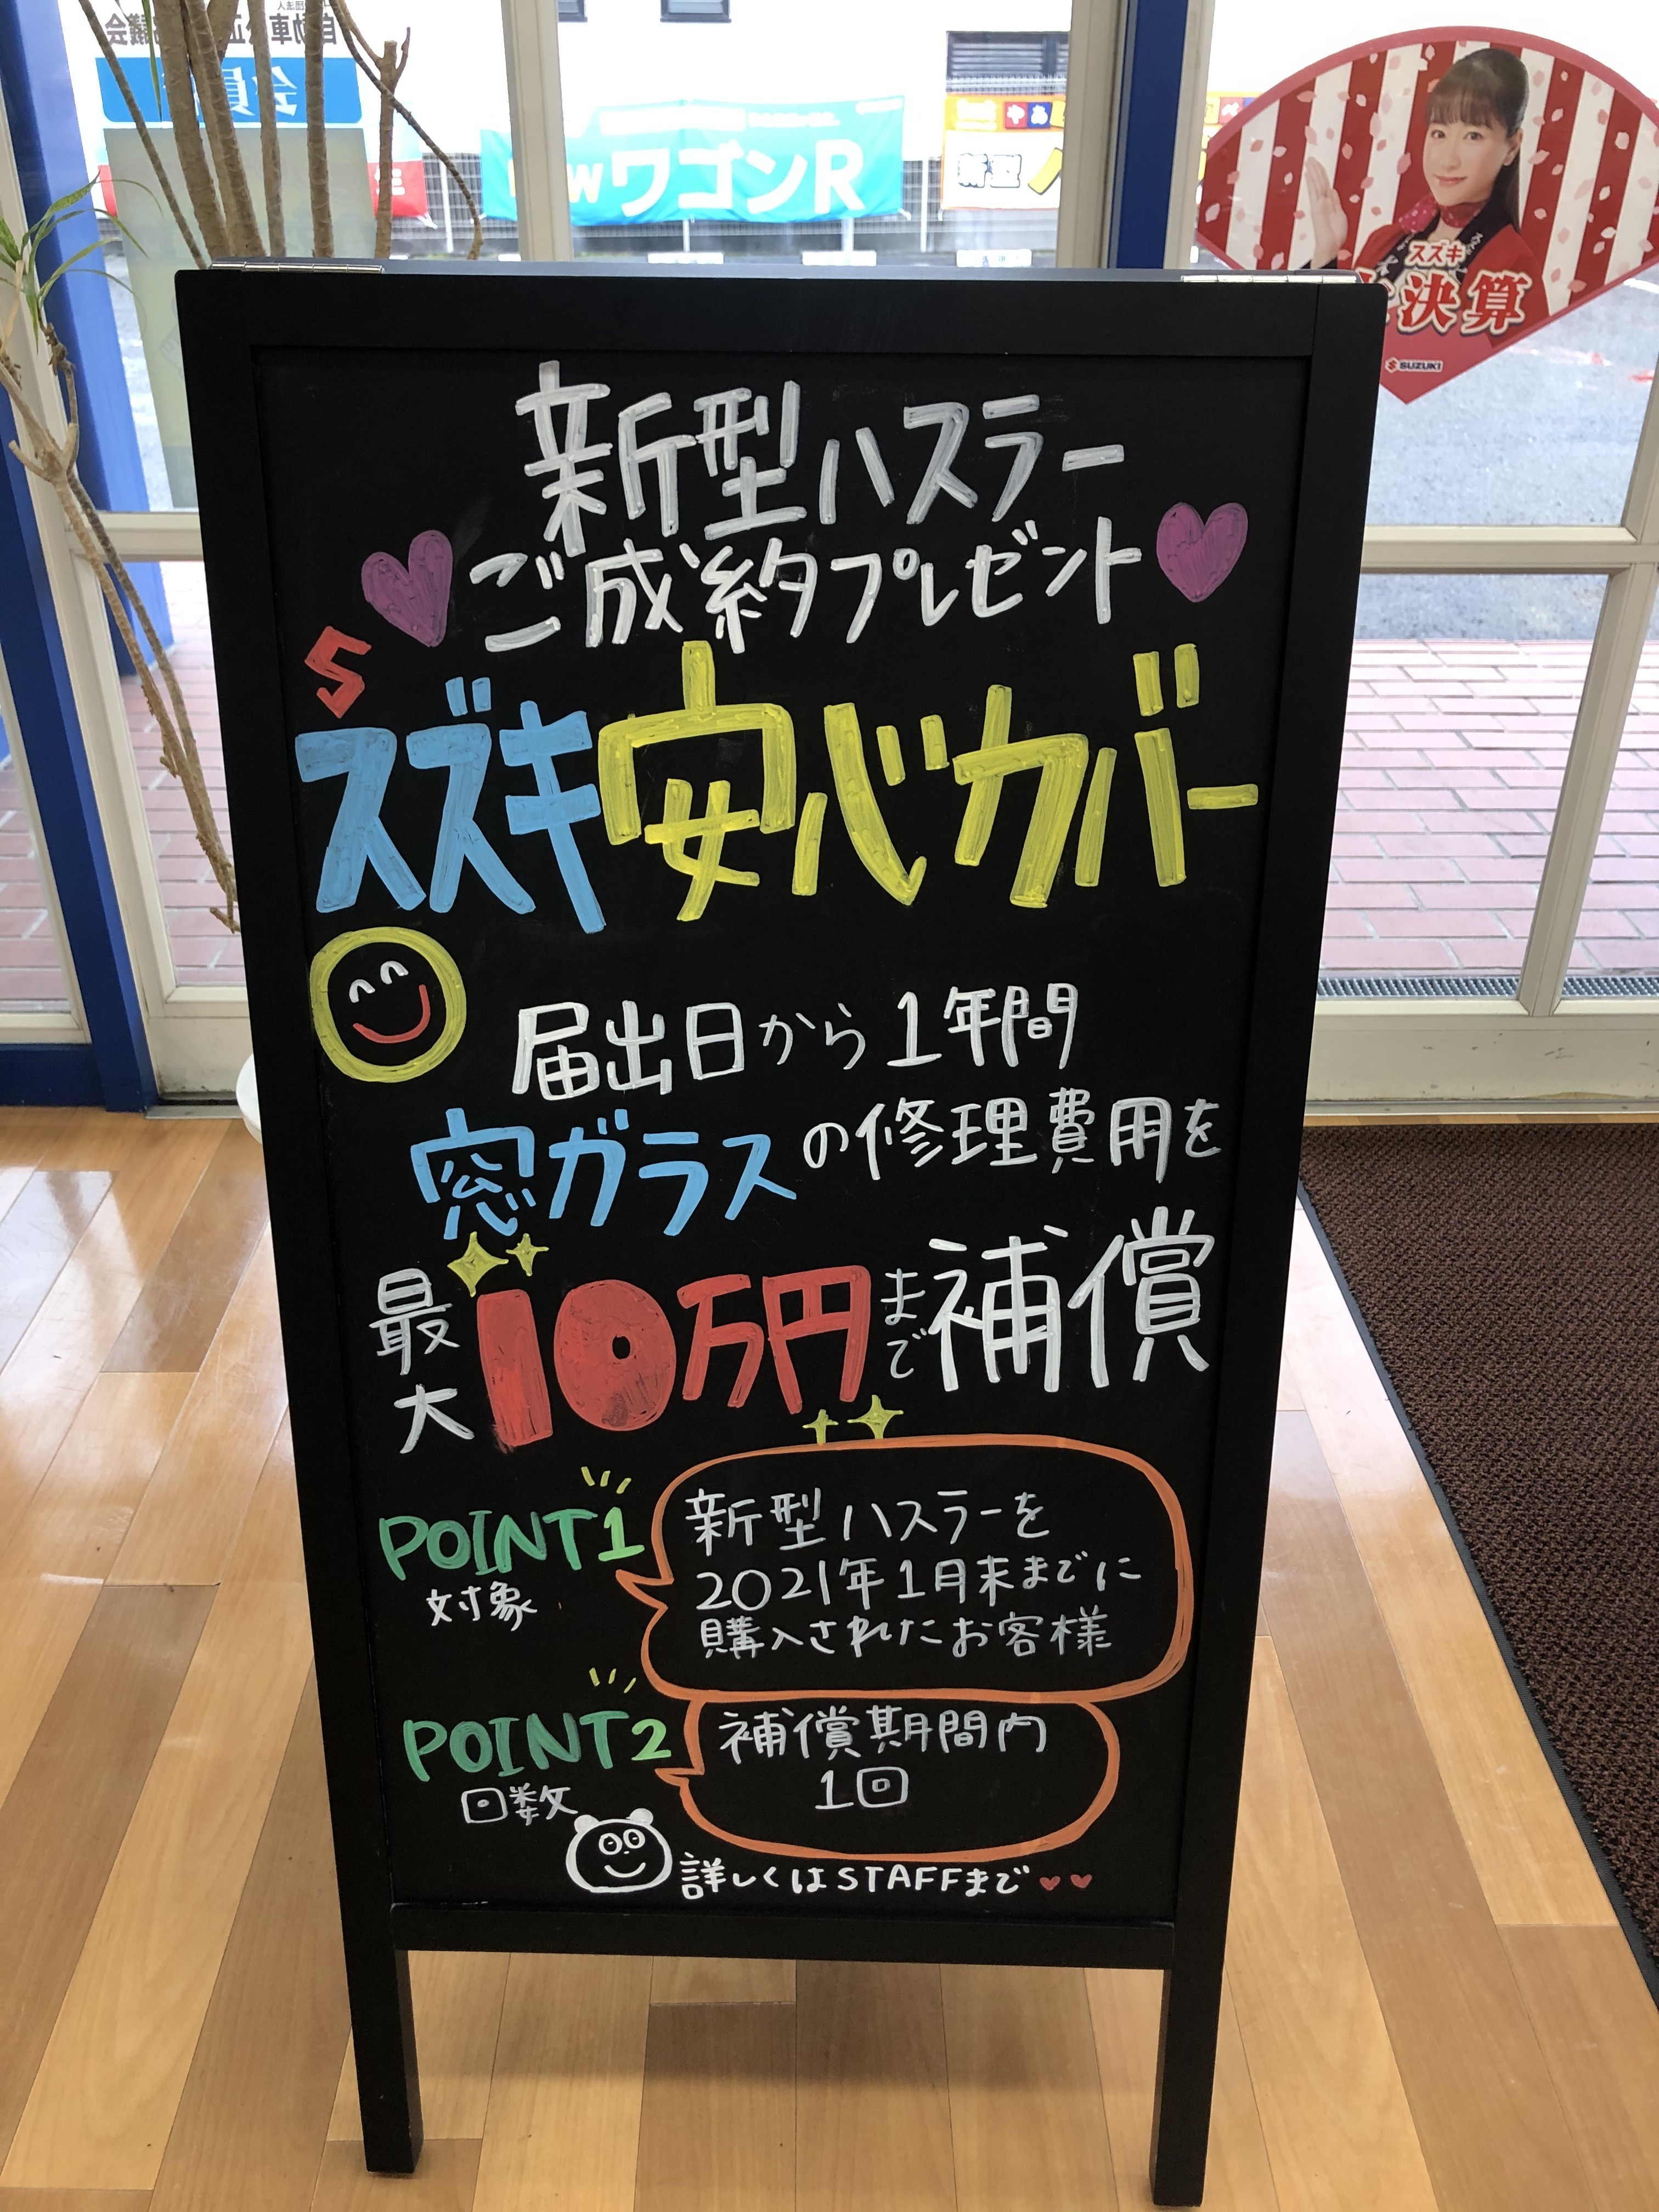 ワゴンR
新型
スズキ
決算
SUZUKI
新型ハスラー
ご成約プレゼント
スズキ安心カバー
届出日から1年間
窓ガラスの修理費用を
最大10万円まで補償
POINT1
対象
新型ハスラーを
2021年1月末までに
購入されたお客様
POINT2
回数
補償期間内
1回
詳しくはSTAFFまで